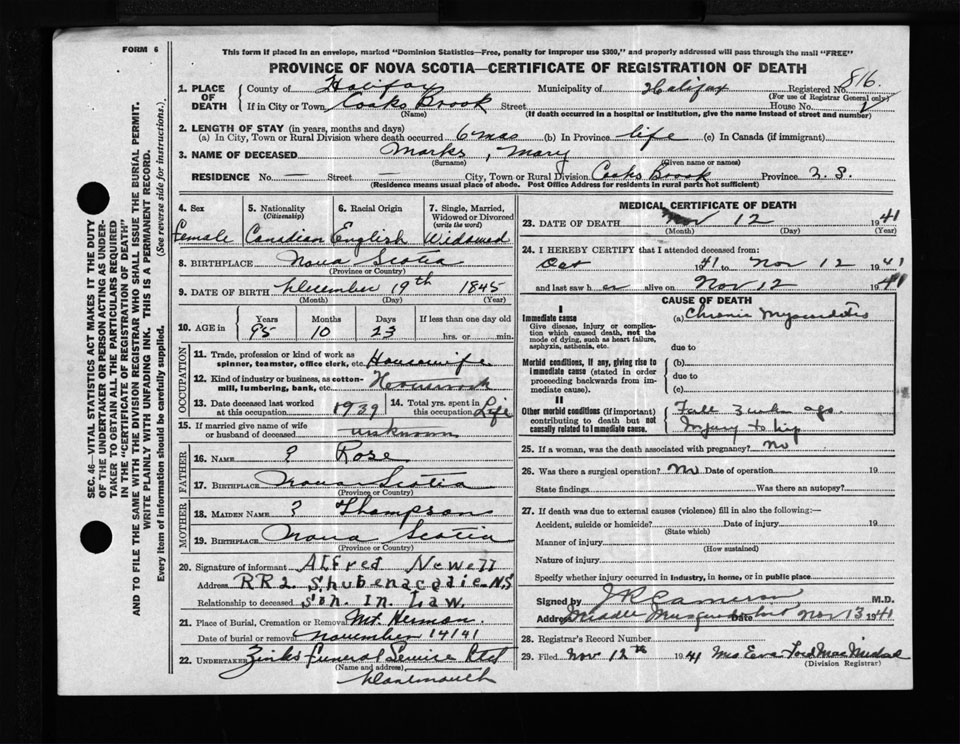 FORM 6
This form if placed in an envelope, marked "Dominion Statistics—Free, penalty for improper use $300," and properly addressed will pass through the mail "FREE"
PROVINCE OF NOVA SCOTIA—CERTIFICATE OF REGISTRATION OF DEATH
SEC. 46—VITAL STATISTICS ACT MAKES IT THE DUTY
OF THE UNDERTAKER OR PERSON ACTING AS UNDER-
TAKER TO OBTAIN ALL THE PARTICULARS REQUIRED
IN THE "CERTIFICATE OF REGISTRATION OF DEATH"
AND TO FILE THE SAME WITH THE DIVISION REGISTRAR WHO SHALL ISSUE THE BURIAL PERMIT.
WRITE PLAINLY WITH UNFADING INK. THIS IS A PERMANENT RECORD.
Every item of information should be carefully supplied. (See reverse side for instructions.)
1. PLACE OF DEATH County of Halifax Municipality of Halifax Registered No. 816
(For use of Registrar General only)
If in City or Town Cooks Brook Street House No.
(Name) (If death occurred in a hospital or institution, give the name instead of street and number)
2. LENGTH OF STAY (in years, months and days)
(a) In City, Town or Rural Division where death occurred 6 mos (b) In Province life (c) In Canada (if immigrant)
3. NAME OF DECEASED Marks, Mary
(Surname) (Given name or names)
RESIDENCE No. — Street — City, Town or Rural Division Cooks Brook Province N.S.
(Residence means usual place of abode. Post Office Address for residents in rural parts not sufficient)
4. Sex Female
5. Nationality (Citizenship) Canadian
6. Racial Origin English
7. Single, Married, Widowed or Divorced (write the word) Widowed
8. BIRTHPLACE Nova Scotia
(Province or Country)
9. DATE OF BIRTH December 19th 1845
(Month) (Day) (Year)
10. AGE in Years Months Days If less than one day old
95 10 23 hrs. or min.
OCCUPATION
11. Trade, profession or kind of work as spinner, teamster, office clerk, etc. Housewife
12. Kind of industry or business, as cotton-mill, lumbering, bank, etc. Housework
13. Date deceased last worked at this occupation 1939
14. Total yrs. spent in this occupation Life
15. If married give name of wife or husband of deceased unknown
FATHER
16. NAME ? Rose
17. BIRTHPLACE Nova Scotia
(Province or Country)
MOTHER
18. MAIDEN NAME ? Thompson
19. BIRTHPLACE Nova Scotia
(Province or Country)
20. Signature of informant Alfred Newell
Address RR2 Shubenacadie N.S
Relationship to deceased Son. In. Law.
21. Place of Burial, Cremation or Removal Mt. Herman.
Date of burial or removal November 14/41
22. UNDERTAKER Zinks Funeral Service Ltd
(Name and address)
Dartmouth
MEDICAL CERTIFICATE OF DEATH
23. DATE OF DEATH Nov 12 1941
(Month) (Day) (Year)
24. I HEREBY CERTIFY that I attended deceased from:
Oct 1941 to Nov 12 1941
and last saw her alive on Nov 12 1941
CAUSE OF DEATH
I
Immediate cause (a) Chronic Myocarditis
Give disease, injury or complication which caused death, not the mode of dying, such as heart failure, asphyxia, asthenia, etc.
due to
Morbid conditions, if any, giving rise to immediate cause (stated in order proceeding backwards from immediate cause).
(b)
due to
(c)
II
Other morbid conditions (if important) contributing to death but not causally related to immediate cause.
Fall ago.
Injury to hip
25. If a woman, was the death associated with pregnancy? No
26. Was there a surgical operation? No Date of operation 19
State findings Was there an autopsy?
27. If death was due to external causes (violence) fill in also the following:—
Accident, suicide or homicide? Date of injury 19
(State which)
Manner of injury
(How sustained)
Nature of injury
Specify whether injury occurred in industry, in home, or in public place
Signed by J R Cameron M.D.
Address Middle Musquodoboit Date Nov 13 1941
28. Registrar's Record Number
29. Filed Nov 12th 1941 Mrs Eva
(Division Registrar)